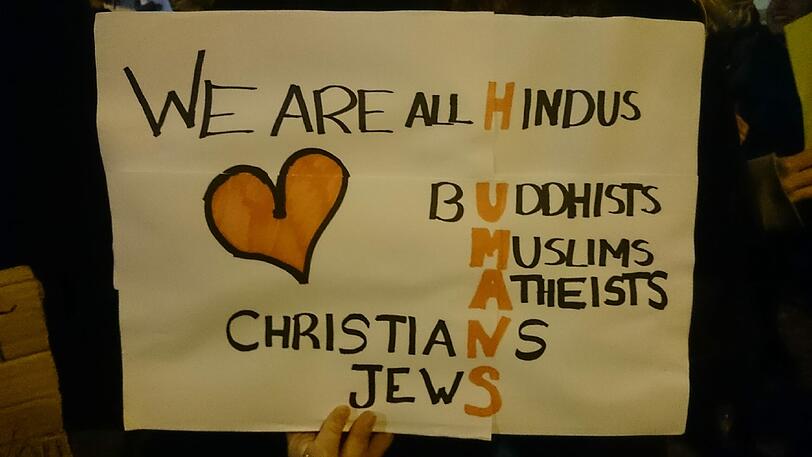 WE ARE ALL HINDUS
BUDDHISTS
MUSLIMS
ATHEISTS
CHRISTIANS
JEWS